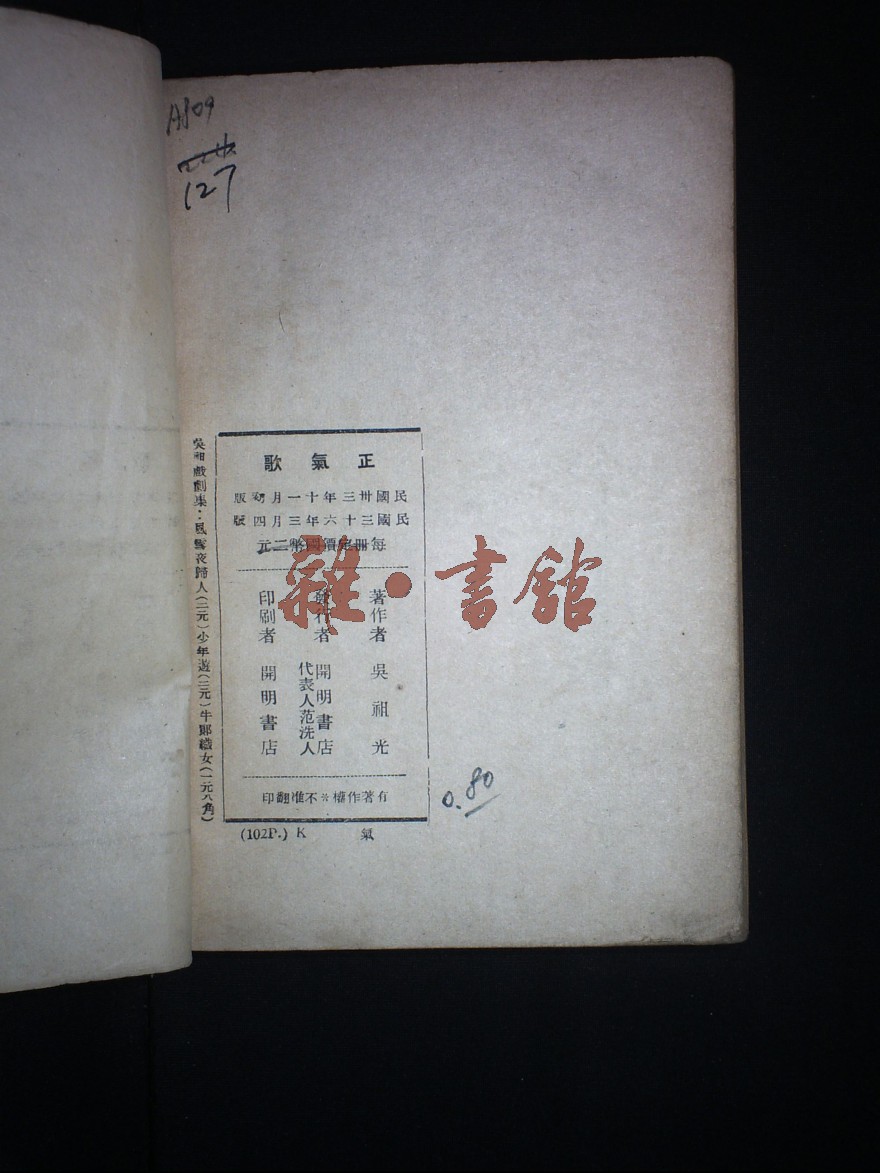 127
正氣歌
民國卅三年十一月初版
民國三十六年三月四版
每冊定價國幣二元
著作者 吳祖光
發行者 開明書店
代表人范洗人
印刷者 開明書店
有著作權※不准翻印
(102P.) K 氣
吳祖戲劇集：風雪夜歸人(二元)少年遊(二元)牛郎織女(一元八角)
0.80
雜·書館